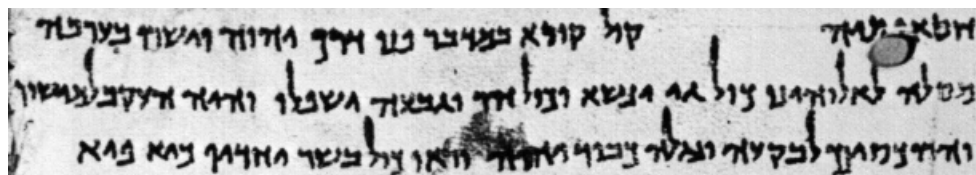 חטאותיה קול קורא במדבר פנו דרך יהוה וישרו בערבה
מסלה לאלוהינו כול גי ינשא וכול הר וגבעה ישפלו והיה העקב למישור
והרכסים לבקעה ונגלה כבוד יהוה וראו כול בשר יחדיו כיא פיא